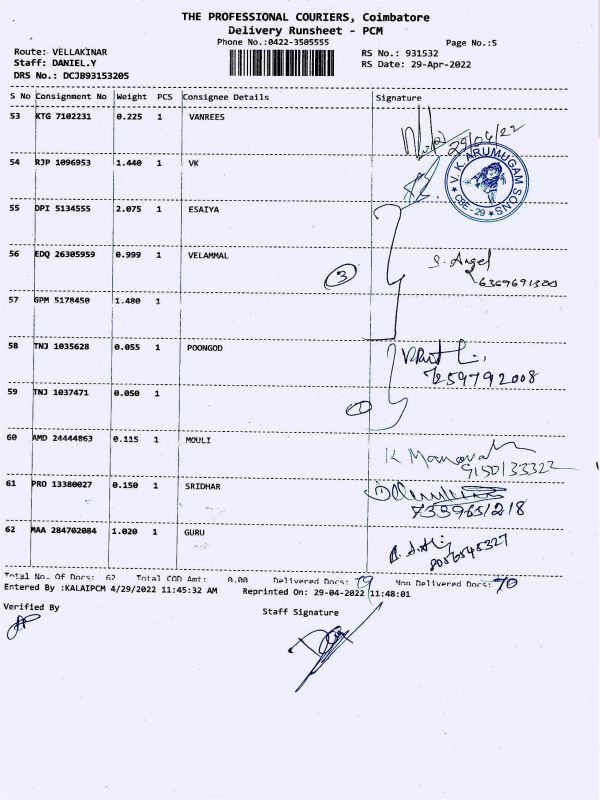 THE PROFESSIONAL COURIERS, Coimbatore
Delivery Runsheet - PCM
Phone No.:0422-3505555
Page No.:5
Route: VELLAKINAR
Staff: DANIEL.Y
DRS No.: DCJB93153205
RS No.: 931532
RS Date: 29-Apr-2022
S No Consignment No Weight PCS Consignee Details Signature
53 KTG 7102231 0.225 1 VANREES
29/04/22
54 RJP 1096953 1.440 1 VK
V.K. ARUMUGAM SONS
CBE-29
55 DPI 5134555 2.075 1 ESAIYA
56 EDQ 26305959 0.999 1 VELAMMAL
3 S. Angel
6369691300
57 GPM 5178450 1.480 1
58 TNJ 1035628 0.055 1 POONGOD
7259792008
59 TNJ 1037471 0.050 1
1
60 AMD 24444863 0.115 1 MOULI
K
9150133322
61 PRO 13380027 0.150 1 SRIDHAR
62 MAA 284702084 1.020 1 GURU
8056545327
Total No. Of Docs: 62 Total COD Amt: 0.00 Delivered Docs: Non Delivered Docs:
Entered By :KALAIPCM 4/29/2022 11:45:32 AM Reprinted On: 29-04-2022 11:48:01
Verified By
Staff Signature